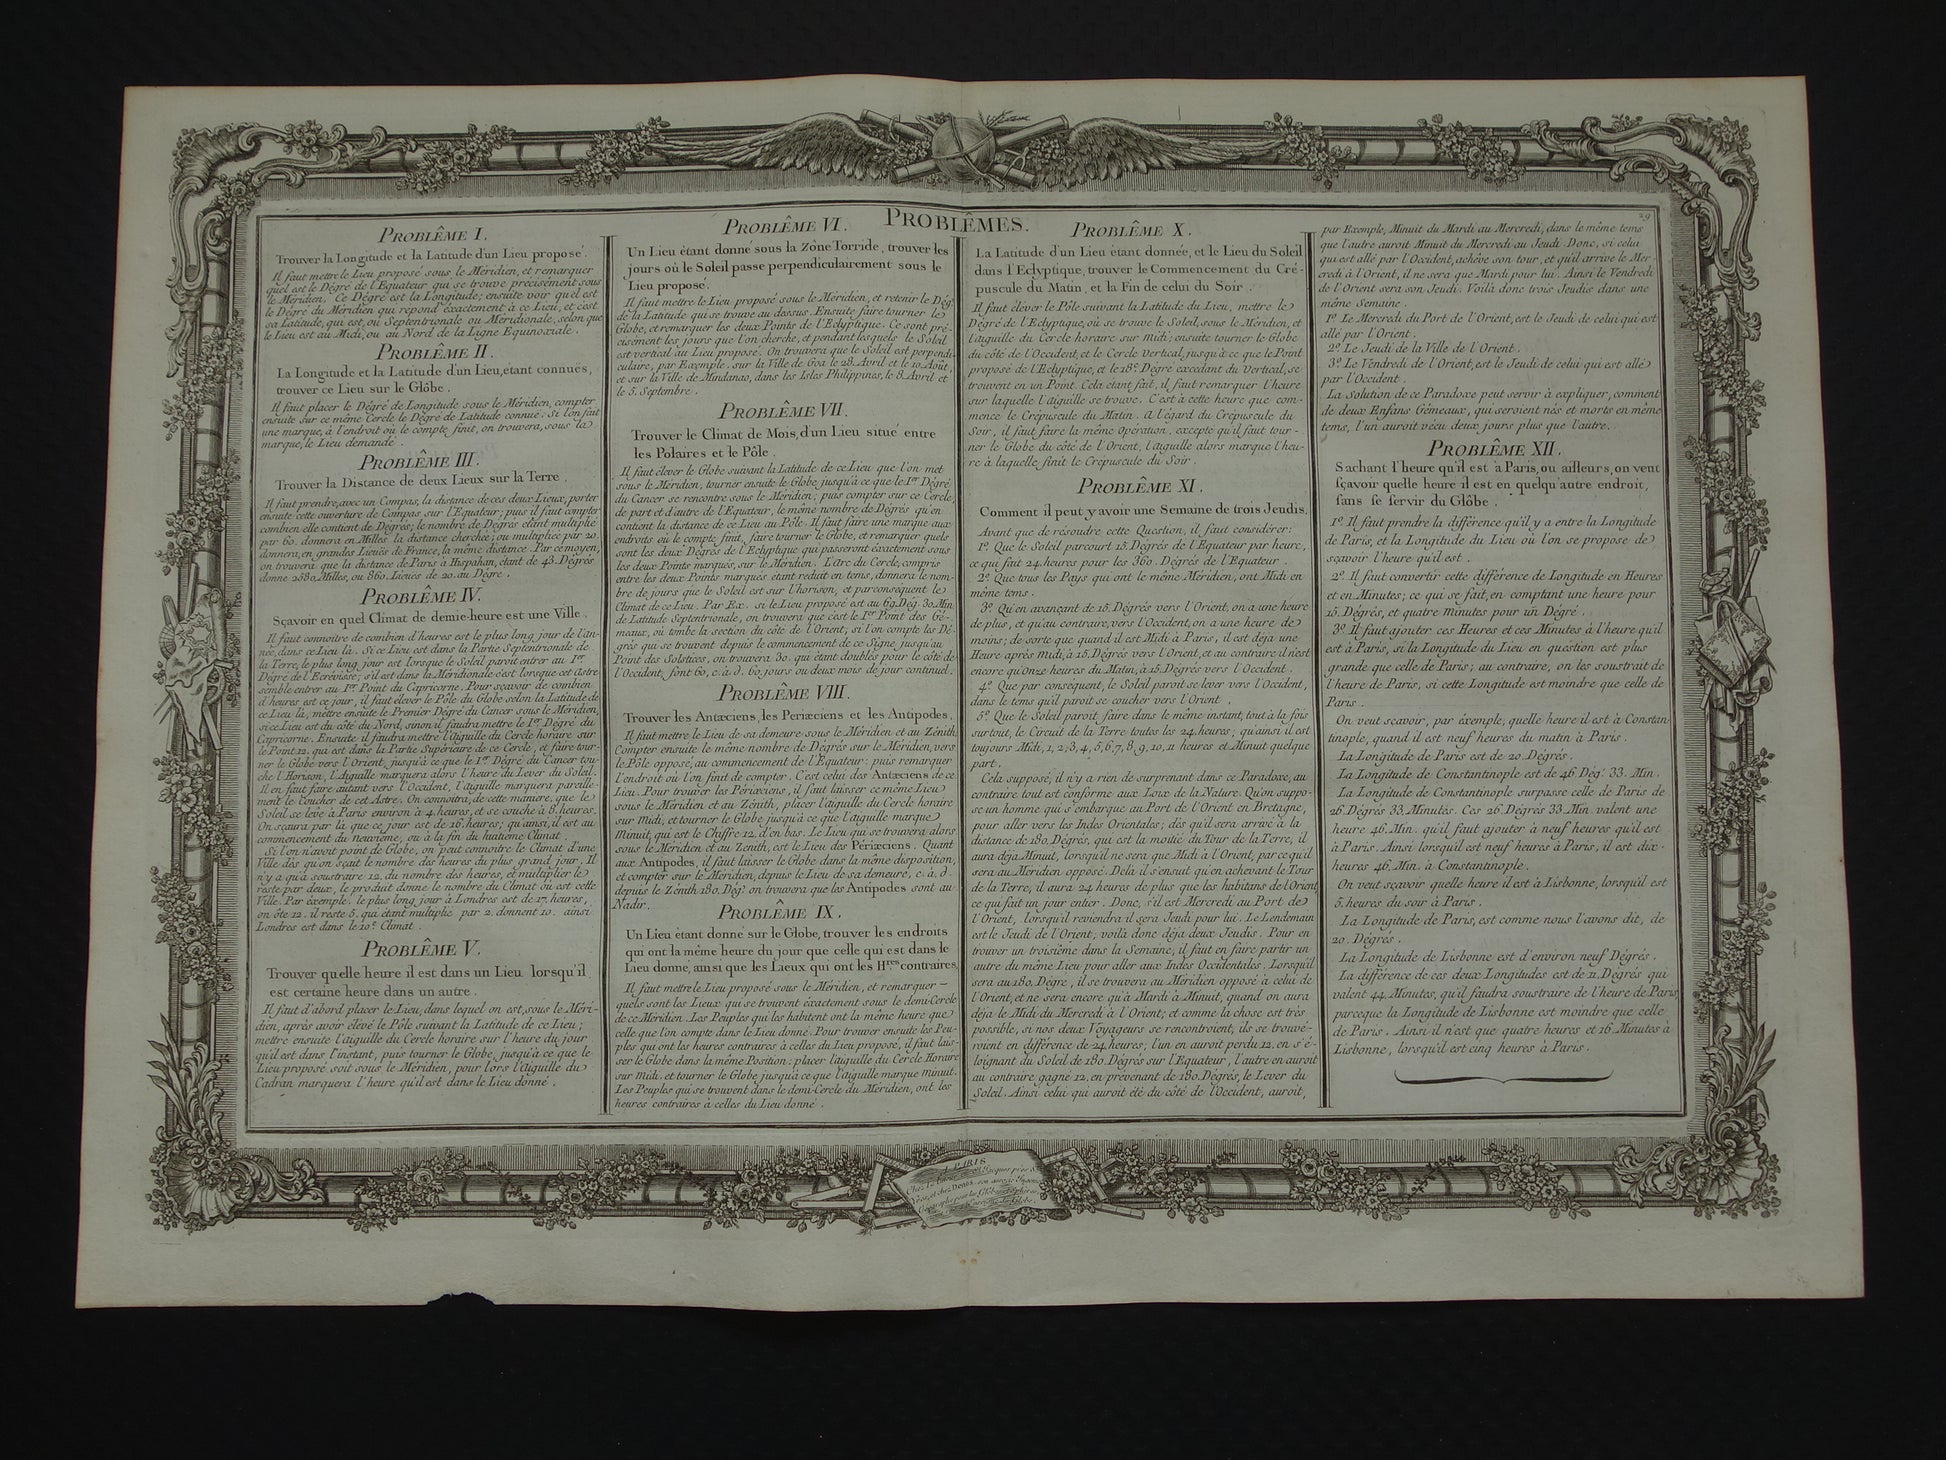 PROBLÊMES.
29
PROBLÊME I.
Trouver la Longitude et la Latitude d'un Lieu proposé.
Il faut mettre le Lieu proposé sous le Méridien, et remarquer
quel est le Dégré de l'Equateur qui se trouve précisément sous
le Méridien, Ce Dégré est la Longitude; ensuite voir quel est
le Dégré du Méridien qui répond éxactement à ce Lieu, et c'est
sa Latitude, qui est, ou Septentrionale ou Méridionale, selon que
le Lieu est au Midi, ou au Nord de la Ligne Equinoxiale.
PROBLÊME II.
La Longitude et la Latitude d'un Lieu, étant connuës,
trouver ce Lieu sur le Glôbe.
Il faut placer le Dégré de Longitude sous le Méridien, compter
ensuite sur ce même Cercle le Dégré de Latitude connuë. Si l'on fait
une marque, à l'endroit où le compte finit, on trouvera, sous la
marque, le Lieu demandé.
PROBLÊME III.
Trouver la Distance de deux Lieux sur la Terre.
Il faut prendre, avec un Compas, la distance de ces deux Lieux, porter
ensuite cette ouverture de Compas sur l'Equateur; puis il faut compter
combien elle contient de Dégrés; le nombre de Dégrés étant multiplié
par 60. donnera en Milles la distance cherchée; ou multiplié par 20.
donnera, en grandes Lieuës de France, la même distance. Par ce moyen,
on trouvera que la distance de Paris à Hispahan, étant de 43. Dégrés
donne 2580. Milles, ou 860. Lieues de 20. au Dégré.
PROBLÊME IV.
Sçavoir en quel Climat de demie-heure est une Ville.
Il faut connoitre de combien d'heures est le plus long jour de l'an-
née, dans ce Lieu là. Si ce Lieu est dans la Partie Septentronale de
la Terre, le plus long jour est lorsque le Soleil paroit entrer au 1er
Dégré de l'Ecrévisse; s'il est dans la Méridionale c'est lorsque cet astre
semble entrer au 1er Point du Capricorne. Pour sçavoir de combien
d'heures est ce jour, il faut élever le Pôle du Globe selon la Latitude de
ce Lieu là, mettre ensuite le Premier Dégré du Cancer sous le Méridien,
si ce Lieu est du côté du Nord, sinon il faudra mettre le 1er Dégré du
Capricorne. Ensuite il faudra mettre l'Aiguille du Cercle horaire sur
le Point 12. qui est dans la Partie Supérieure de ce Cercle, et faire tour-
ner le Globe vers l'Orient, jusqu'à ce que le 1er Dégré du Cancer tou-
che l'Horison, l'Aiguille marquera alors l'heure du Lever du Soleil.
Il en faut faire autant vers l'Occident, l'aiguille marquera pareille-
ment le Coucher de cet Astre. On connoitra, de cette maniere, que le
Soleil se lève à Paris environ à 4. heures, et se couche à 8. heures.
On sçaura par là que ce jour est de 16. heures; qu'ainsi, il est au
commencement du neuvième, ou à la fin du huitième Climat.
Si l'on n'avoit point de Globe, on peut connoître le Climat d'une
Ville dès qu'on sçait le nombre des heures du plus grand jour. Il
n'y a qu'à soustraire 12. du nombre des heures, et multiplier le
reste par deux, le produit donne le nombre du Climat où est cette
Ville. Par éxemple. le plus long jour à Londres est de 17. heures,
on ôte 12. il reste 5. qui étant multiplié par 2. donnent 10. ainsi
Londres est dans le 10e. Climat.
PROBLÊME V.
Trouver quelle heure il est dans un Lieu lorsqu'il
est certaine heure dans un autre.
Il faut d'abord placer le Lieu, dans lequel on est, sous le Méri-
dien, après avoir élevé le Pôle suivant la Latitude de ce Lieu;
mettre ensuite l'aiguille du Cercle horaire sur l'heure du jour
qu'il est dans l'instant, puis tourner le Globe, jusqu'à ce que le
Lieu proposé soit sous le Méridien, pour lors l'Aiguille du
Cadran marquera l'heure qu'il est dans le Lieu donné.
PROBLÊME VI.
Un Lieu étant donné sous la Zône Torride, trouver les
jours où le Soleil passe perpendiculairement sous le
Lieu proposé.
Il faut mettre le Lieu proposé sous le Méridien, et retenir le Dég.
de la Latitude qui se trouve au dessus. Ensuite faire tourner le
Globe, et remarquer les deux Points de l'Eclyptique. Ce sont pré-
cisément les jours que l'on cherche, et pendant lesquels le Soleil
est vertical au Lieu proposé. On trouvera que le Soleil est perpendi-
culaire, par Exemple, sur la Ville de Goa le 28. Avril et le 10. Août,
et sur la Ville de Mindanao, dans les Isles Philippines, le 8. Avril et
le 5. Septembre.
PROBLÊME VII.
Trouver le Climat de Mois, d'un Lieu situé entre
les Pôlaires et le Pôle.
Il faut élever le Globe suivant la Latitude de ce Lieu que l'on met
sous le Méridien, tourner ensuite le Globe, jusqu'à ce que le 1er Dégré
du Cancer se rencontre sous le Méridien; puis compter sur ce Cercle,
de part et d'autre de l'Equateur, le même nombre de Dégrés qu'en
contient la distance de ce Lieu au Pôle. Il faut faire une marque aux
endroits où le compte finit, faire tourner le Globe, et remarquer quels
sont les deux Dégrés de l'Eclyptique qui passeront éxactement sous
les deux Points marqués, sur le Méridien. L'Arc du Cercle, compris
entre les deux Points marqués étant réduit en tems, donnera le nom-
bre de jours que le Soleil est sur l'horison, et parconséquent le
Climat de ce Lieu. Par Ex. si le Lieu proposé est au 69. Dég. 30. Min.
de Latitude Septentrionale, on trouvera que c'est le 1er Point des Gé-
meaux, où tombe la section du côté de l'Orient; si l'on compte les Dé-
grés qui se trouvent depuis le commencement de ce Signe, jusqu'au
Point des Solstices, on trouvera 30. qui étant doublés pour le côté de
l'Occident, font 60, c. à. d. 60. jours ou deux mois de jour continuel.
PROBLÊME VIII.
Trouver les Antœciens, les Periœciens et les Antipodes.
Il faut mettre le Lieu de sa demeure sous le Méridien et au Zénith.
Compter ensuite le même nombre de Dégrés sur le Méridien, vers
le Pôle opposé, au commencement de l'Equateur: puis remarquer
l'endroit où l'on finit de compter. C'est celui des Antœciens de ce
Lieu. Pour trouver les Periœciens, il faut laisser ce même Lieu
sous le Méridien et au Zénith, placer l'aiguille du Cercle horaire
sur Midi, et tourner le Globe jusqu'à ce que l'aiguille marque
Minuit, qui est le Chiffre 12. d'en bas. Le Lieu qui se trouvera alors
sous le Méridien et au Zenith, est le Lieu des Périœciens. Quant
aux Antipodes, il faut laisser le Globe dans la même disposition,
et compter sur le Méridien, depuis le Lieu de sa demeure, c. à. d.
depuis le Zénith 180. Dég. on trouvera que les Antipodes sont au
Nadir.
PROBLÊME IX.
Un Lieu étant donné sur le Globe, trouver les endroits
qui ont la même heure du jour que celle qui est dans le
Lieu donné, ainsi que les Lieux qui ont les Hres contraires.
Il faut mettre le Lieu proposé sous le Méridien, et remarquer
quels sont les Lieux qui se trouvent éxactement sous le demi-Cercle
de ce Méridien. Les Peuples qui les habitent ont la même heure que
celle que l'on compte dans le Lieu donné. Pour trouver ensuite les Peu-
ples qui ont les heures contraires à celles du Lieu proposé, il faut lais-
ser le Globe dans la même Position: placer l'aiguille du Cercle Horaire
sur Midi, et tourner le Globe jusqu'à ce que l'aiguille marque Minuit.
Les Peuples qui se trouvent dans le demi-Cercle du Méridien, ont les
heures contraires à celles du Lieu donné.
PROBLÊME X.
La Latitude d'un Lieu étant donnée, et le Lieu du Soleil
dans l'Eclyptique, trouver le Commencement du Cré-
puscule du Matin, et la Fin de celui du Soir.
Il faut élever le Pôle suivant la Latitude du Lieu, mettre le
Dégré de l'Eclyptique, où se trouve le Soleil, sous le Méridien, et
l'aiguille du Cercle horaire sur Midi; ensuite tourner le Globe
du côté de l'Occident, et le Cercle vertical, jusqu'à ce que le Point
proposé de l'Eclyptique, et le 18e. Dégré excédant du Vertical, se
trouvent en un Point. Cela étant fait, il faut remarquer l'heure
sur laquelle l'aiguille se trouve. C'est à cette heure que com-
mence le Crépuscule du Matin. A l'égard du Crépuscule du
Soir, il faut faire la même Opération, excepté qu'il faut tour-
ner le Globe du côté de l'Orient, l'Aiguille alors marque l'heu-
re à laquelle finit le Crépuscule du Soir.
PROBLÊME XI.
Comment il peut y avoir une Semaine de trois Jeudis.
Avant que de résoudre cette Question, il faut considérer:
1º. Que le Soleil parcourt 15. Dégrés de l'Equateur par heure,
ce qui fait 24. heures pour les 360. Dégrés de l'Equateur.
2º. Que tous les Pays qui ont le même Méridien, ont Midi en
même tems.
3º. Qu'en avançant de 15. Dégrés vers l'Orient, on a une heure
de plus, et qu'au contraire, vers l'Occident, on a une heure de
moins; de sorte que quand il est Midi à Paris, il est déja une
Heure après Midi, à 15. Dégrés vers l'Orient, et au contraire il n'est
encore qu'Onze heures du Matin, à 15. Dégrés vers l'Occident.
4º. Que par conséquent, le Soleil paroit se lever vers l'Occident,
dans le tems qu'il paroit se coucher vers l'Orient.
5º. Que le Soleil paroit, faire dans le même instant, tout à la fois
surtout, le Circuit de la Terre toutes les 24. heures; qu'ainsi il est
toujours Midi, 1, 2, 3, 4, 5, 6, 7, 8, 9, 10, 11 heures et Minuit quelque
part.
Cela supposé, il n'y a rien de surprenant dans ce Paradoxe, au
contraire tout est conforme aux Loix de la Nature. Qu'on suppo-
se un homme qui s'embarque au Port de l'Orient en Bretagne,
pour aller vers les Indes Orientales; dès qu'il sera arrivé à la
distance de 180. Dégrés, qui est la moitié du Tour de la Terre, il
aura déja Minuit, lorsqu'il ne sera que Midi à l'Orient, par ce qu'il
sera au Méridien opposé. Delà il s'ensuit qu'en achevant le Tour
de la Terre, il aura 24 heures de plus que les habitans de l'Orient,
ce qui fait un jour entier. Donc, s'il est Mercredi au Port de
l'Orient, lorsqu'il reviendra il sera Jeudi pour lui. Le Lendemain
est le Jeudi de l'Orient; voilà donc déja deux Jeudis. Pour en
trouver un troisième dans la Semaine, il faut en faire partir un
autre du même Lieu pour aller aux Indes Occidentales. Lorsqu'il
sera au 180. Dégré, il se trouvera au Méridien opposé à celui de
l'Orient, et ne sera encore qu'à Mardi à Minuit, quand on aura
déja le Midi du Mercredi à l'Orient; et comme la chose est très
possible, si nos deux Voyageurs se rencontroient, ils se trouve-
roient en différence de 24. heures; l'un en auroit perdu 12, en s'é-
loignant du Soleil de 180. Dégrés sur l'Equateur, l'autre en auroit
au contraire gagné 12, en prévenant de 180. Dégrés, le Lever du
Soleil. Ainsi celui qui auroit été du côté de l'Occident, auroit,
par Exemple, Minuit du Mardi au Mercredi, dans le même tems
que l'autre auroit Minuit du Mercredi au Jeudi. Donc, si celui
qui est allé par l'Occident, achève son tour, et qu'il arrive le Mer-
credi à l'Orient, il ne sera que Mardi pour lui. Ainsi le Vendredi
de l'Orient sera son Jeudi. Voilà donc trois Jeudis dans une
même Semaine.
1º. Le Mercredi du Port de l'Orient, est le Jeudi de celui qui est
allé par l'Orient.
2º. Le Jeudi de la Ville de l'Orient.
3º. Le Vendredi de l'Orient, est le Jeudi de celui qui est allé
par l'Occident.
La Solution de ce Paradoxe peut servir à expliquer, comment
de deux Enfans Gémeaux, qui seroient nés et morts en même
tems, l'un auroit vécu deux jours plus que l'autre.
PROBLÊME XII.
Sachant l'heure qu'il est à Paris, ou ailleurs, on veut
sçavoir quelle heure il est en quelqu'autre endroit,
sans se servir du Glôbe.
1º. Il faut prendre la différence qu'il y a entre la Longitude
de Paris, et la Longitude du Lieu où l'on se propose de
sçavoir l'heure qu'il est.
2º. Il faut convertir cette différence de Longitude en Heures
et en Minutes; ce qui se fait, en comptant une heure pour
15. Dégrés, et quatre Minutes pour un Dégré.
3º. Il faut ajouter ces Heures et ces Minutes à l'heure qu'il
est à Paris, si la Longitude du Lieu en question est plus
grande que celle de Paris; au contraire, on les soustrait de
l'heure de Paris, si cette Longitude est moindre que celle de
Paris.
On veut sçavoir, par éxemple, quelle heure il est à Constan-
tinople, quand il est neuf heures du matin à Paris.
La Longitude de Paris est de 20. Dégrés.
La Longitude de Constantinople est de 46 Dég. 33. Min.
La Longitude de Constantinople surpasse celle de Paris de
26. Dégrés 33. Minutes. Ces 26. Dégrés 33. Min. valent une
heure 46. Min. qu'il faut ajouter à neuf heures qu'il est
à Paris. Ainsi lorsqu'il est neuf heures à Paris, il est dix-
heures 46. Min. à Constantinople.
On veut sçavoir quelle heure il est à Lisbonne, lorsqu'il est
5. heures du soir à Paris.
La Longitude de Paris, est comme nous l'avons dit, de
20. Dégrés.
La Longitude de Lisbonne est d'environ neuf Dégrés.
La différence de ces deux Longitudes est de 11. Dégrés qui
valent 44. Minutes, qu'il faudra soustraire de l'heure de Paris,
parceque la Longitude de Lisbonne est moindre que celle
de Paris. Ainsi il n'est que quatre heures et 16. Minutes à
Lisbonne, lorsqu'il est cinq heures à Paris.
A PARIS